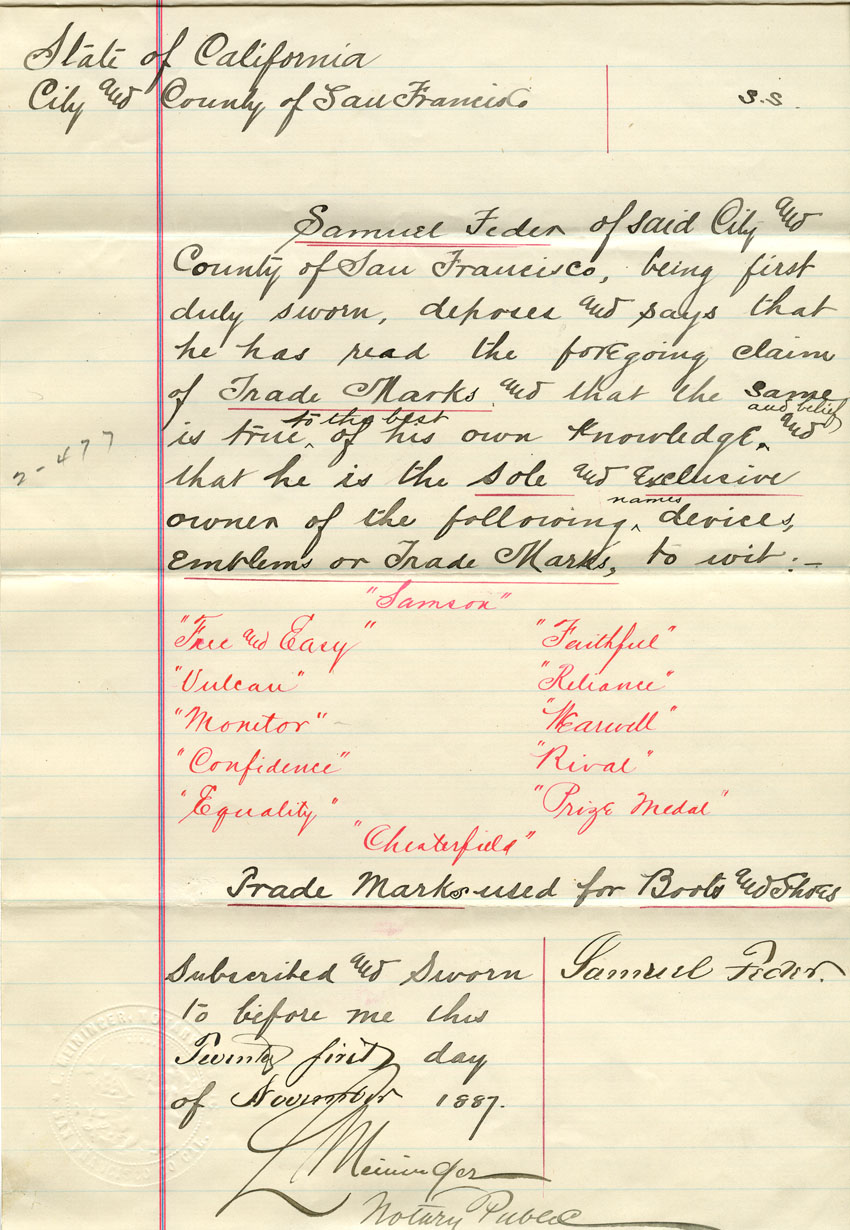 State of California
City and County of San Francisco S.S.
Samuel Feder of said City and
County of San Francisco, being first
duly sworn, deposes and says that
he has read the foregoing claim
of Trade Marks and that the same
is true, to the best of his own knowledge, and belief and
that he is the sole and Exclusive
owner of the following names devices,
Emblems or Trade Marks, to wit:-
"Samson"
"Free and Easy" "Faithful"
"Vulcan" "Reliance"
"Monitor" "Wearwell"
"Confidence" "Rival"
"Equality" "Prize Medal"
"Chesterfield"
Trade Marks used for Boots and Shoes
2-477
Subscribed and Sworn
to before me this
Twenty first day
of November 1887.
Samuel Feder.
L Meininger
Notary Public